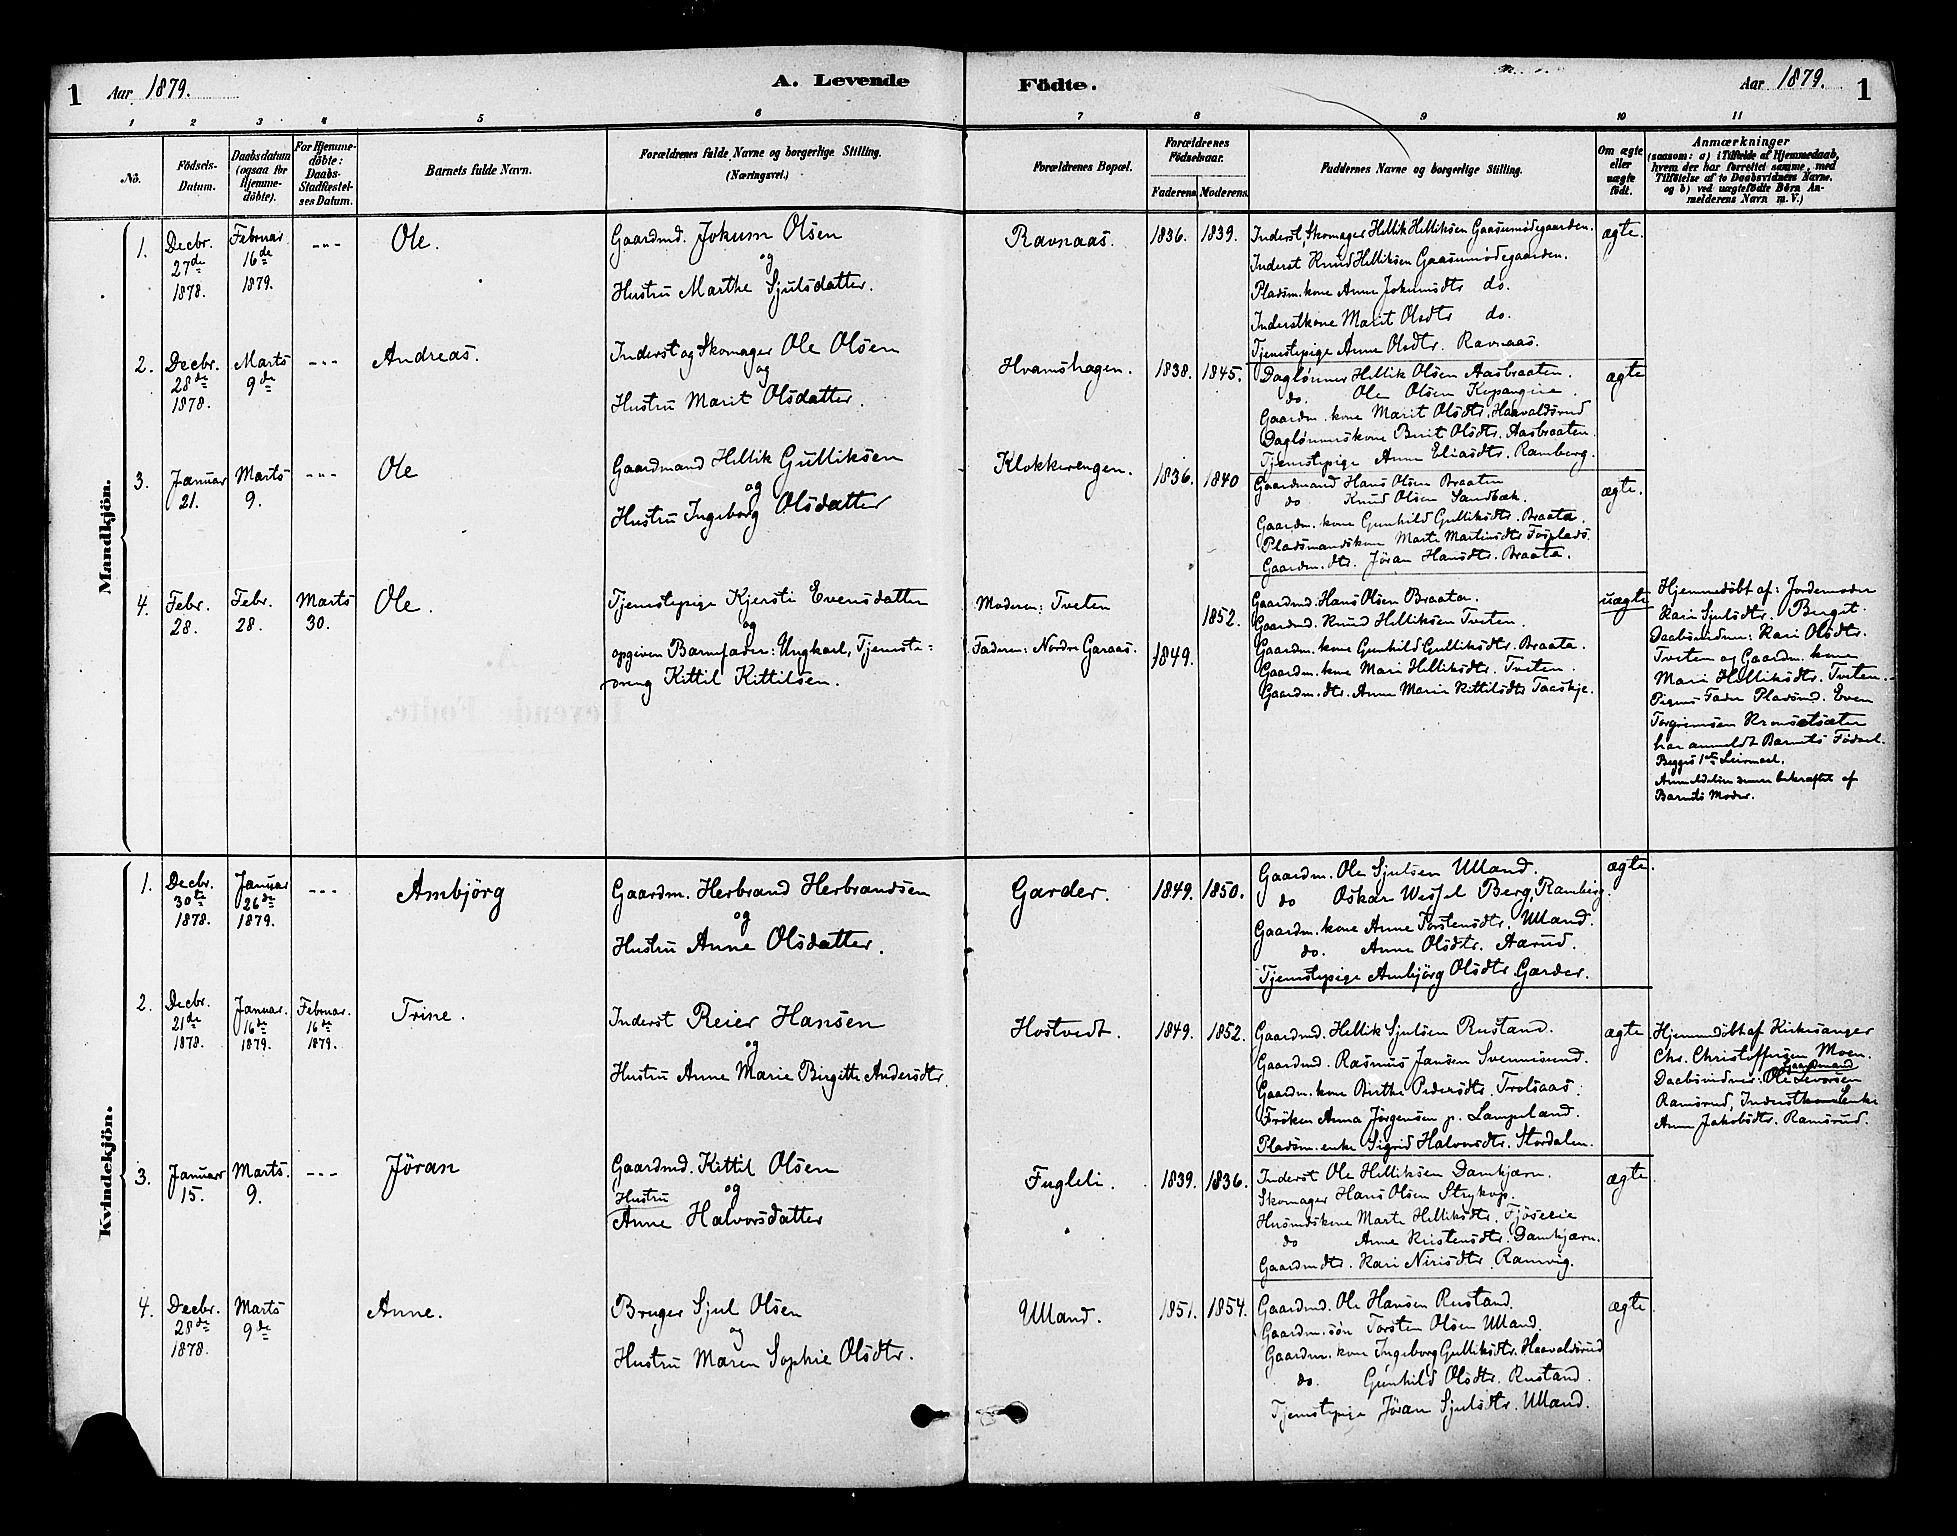 1 Aar 1879. A. Levende Födte. Aar 1879. 1
1 2 3 4 5 6 7 8 9 10 11
No. Födsels-Datum. Daabsdatum (ogsaa for Hjemme-döbte). For Hjemme-döbte: Daabs-Stadfæstel-ses Datum. Barnets fulde Navn. Forældrenes fulde Navne og borgerlige Stilling. (Næringsvei.) Forældrenes Bopæl. Forældrenes Födselsaar. Faderens Moderens. Faddernes Navne og borgerlige Stilling. Om ægte eller uægte födt. Anmærkninger
(saasom: a) i Tilfælde af Hjemmedaab, hvem der har forrettet samme, med Tilföielse af to Daabsvidners Navne. og b) ved uægtefödte Börn An-melderens Navn m. V.)
Mandkjön.
1. Decbr. 27de 1878. Februar 16de 1879. --- Ole.
Gaardmd. Jokum Olsen
og
Hustru Marthe Sjulsdatter.
Ravnaas. 1836. 1839.
Inderst Skomager Hellik Helliksen Gaasumødegaarden.
Inderst Knud Helliksen Gaasumødegaarden.
Pladsm. kone Anne Jokumsdtr do.
Inderstkone Marit Olsdtr do.
Tjenstepige Anne Olsdtr. Ravnaas.
ægte.
2. Decbr. 28de 1878. Marts 9de --- Andreas.
Inderst og Skomager Ole Olsen
og
Hustru Marit Olsdatter.
Hvamshagen. 1838. 1845.
Daglønner Hellik Olsen Aasbraaten.
do. Ole Olsen
Gaardm. kone Marit Olsdtr. Haavaldsrud
Daglønnerskone Berit Olsdtr. Aasbraaten.
Tjenstepige Anne Eliasdtr. Ramberg.
ægte
3. Januar 21. Marts 9. --- Ole
Gaardmand Hellik Gulliksen
og
Hustru Ingeborg Olsdatter
Klokkerengen. 1836. 1840
Gaardmand Hans Olsen Braaten
do Knud Olsen Sandbæk.
Gaardm. kone Gunhild Gulliksdtr. Braata.
Pladsmandskone Marte Martinsdtr Fosplads.
Gaardm. dtr. Jöran Hansdtr. Braata.
ægte.
4. Febr. 28. Febr. 28. Marts 30. Ole.
Tjenstepige Kjersti Evensdatter
og
opgiven Barnefader: Ungkarl, Tjeneste-
dreng Kittil Kittilsen.
Moderen: Tveten
Faderen: Nordre Garaas. 1849. 1852.
Gaardmd. Hans Olsen Braata.
Gaardmd. Knud Helliksen Tveten.
Gaardm. kone Gunhild Gulliksdtr. Braata.
Gaardm. kone Mari Helliksdtr. Tveten.
Gaardm. dtr. Anne Marie Kittilsdtr
uægte
Hjemmedøbt af: Jordemoder
Kari Sjulsdtr. Berget.
Daabsvidner: Kari Olsdtr.
Tveten og Gaardm. kone
Mari Helliksdtr. Tveten.
Pigens Fader Pladsmd. Even
Torgrimsen
har anmeldt Barnets Fødsel.
Begges 1ste Leiermaal.
Anmeldelsen senere bekræftet af
Barnets Moder.
Kvindekjön.
1. Decbr. 30te 1878. Januar 26de 1879. --- Ambjörg
Gaardm. Herbrand Herbrandsen
og
Hustru Anne Olsdatter.
Garder. 1849. 1850.
Gaardm. Ole Sjulsen Ulland.
do Oskar Wessel Berg, Ramberg.
Gaardm. kone Anne Torstensdtr. Ulland.
do. Anne Olsdtr. Aarud.
Tjenstepige Ambjörg Olsdtr. Garder.
ægte.
2. Decbr. 21de 1878. Januar. 16de 1879. Februar. 16de 1879. Trine.
Inderst Reier Hansen
og
Hustru Anne Marie Birgitte Andersdtr.
Hostvedt. 1849. 1852.
Gaardmd. Hellik Sjulsen Rustand.
Gaardmd. Rasmus Jansen Svennesund.
Gaardm. kone Birthe Pedersdtr. Trolsaas.
Fröken Anna Jørgensen p. Lampeland.
Pladsm. enke Sigrid Halvorsdtr. Stordalen.
ægte
Hjemmedøbt af Kirkesanger
Chr. Christoffersen Moen.
Daabsvidner: Gaardmand Ole Levorsen
Ramsrud, Inderstkone Lenke
Anne Jakobsdtr. Ramsrud.
3. Januar 15. Marts. 9. --- Jöran
Gaardmd. Kittil Olsen
og
Hustru
Anne Halvorsdatter
Fugleli. 1839. 1836.
Inderst Ole Helliksen Damkjærn.
Skomager Hans Olsen Strykop.
Husmdskone Marte Helliksdtr.
do Anne Kristensdtr. Damkjærn.
Gaardmdtr. Kari Nirisdtr. Ramvig.
ægte
4. Decbr. 28de 1878. Marts 9de Anne.
Bruger Sjul Olsen
og
Hustru Maren Sophie Olsdtr.
Ulland. 1851. 1854.
Gaardmd. Ole Hansen Rustand.
Gaardm. sön Torsten Olsen Ulland.
Gaardm. kone Ingeborg Gulliksdtr. Haavaldsrud
do. Gunhild Olsdtr. Rustand.
Tjenstepige Jöran Sjulsdtr. Ulland.
ægte